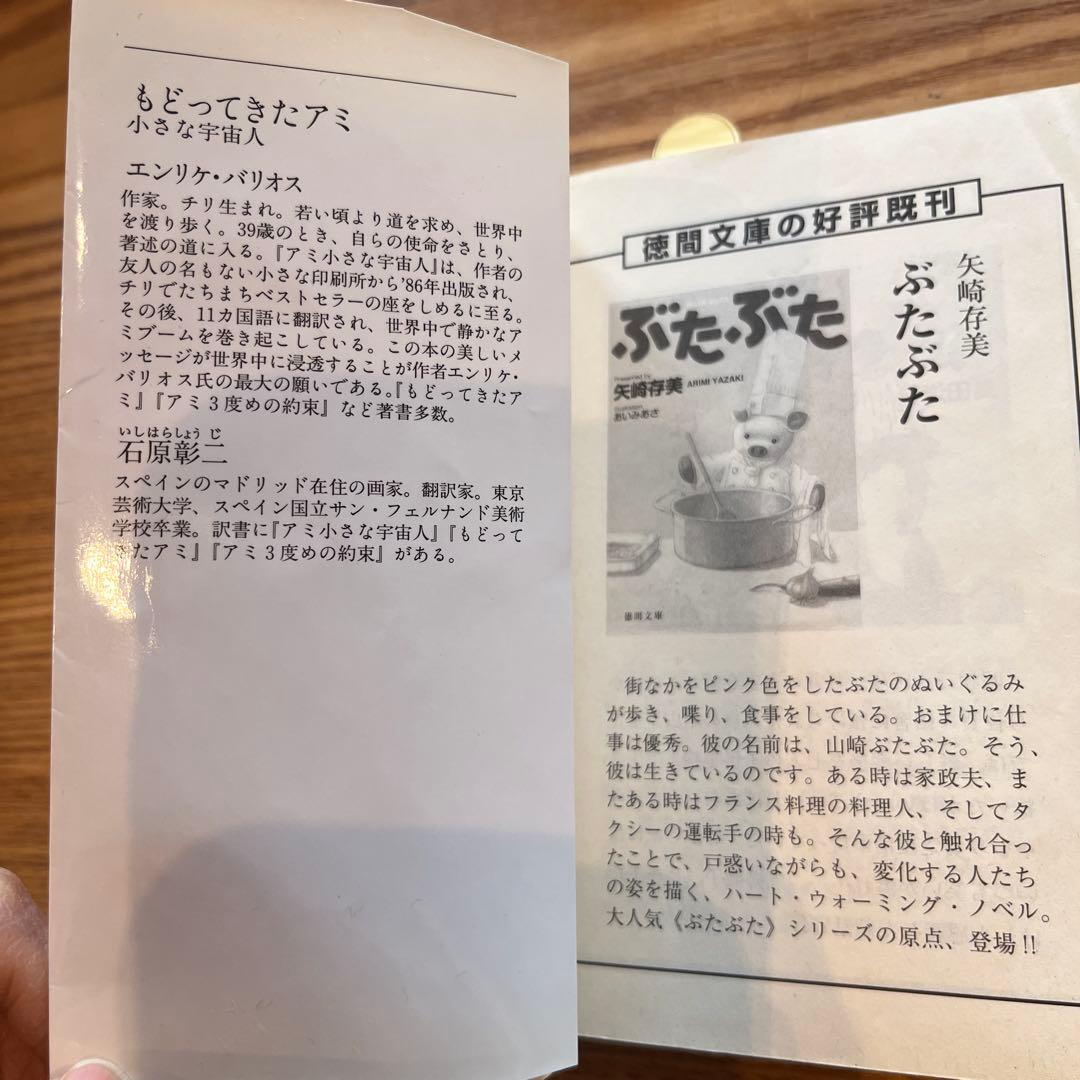 もどってきたアミ
小さな宇宙人
エンリケ・バリオス
作家。チリ生まれ。若い頃より道を求め、世界中
を渡り歩く。39歳のとき、自らの使命をさとり、
著述の道に入る。『アミ小さな宇宙人』は、作者の
友人の名もない小さな印刷所から'86年出版され、
チリでたちまちベストセラーの座をしめるに至る。
その後、11カ国語に翻訳され、世界中で静かなア
ミブームを巻き起こしている。この本の美しいメ
ッセージが世界中に浸透することが作者エンリケ・
バリオス氏の最大の願いである。『もどってきたア
ミ』『アミ3度めの約束』など著書多数。
いしはらしょうじ
石原彰二
スペインのマドリッド在住の画家。翻訳家。東京
芸術大学、スペイン国立サン・フェルナンド美術
学校卒業。訳書に『アミ小さな宇宙人』『もどって
きたアミ』『アミ3度めの約束』がある。
徳間文庫の好評既刊
矢崎存美
ぶたぶた
ぶたぶた
Presented by
矢崎存美 ARIMI YAZAKI
Illustration
あいみあさ
徳間文庫
街なかをピンク色をしたぶたのぬいぐるみ
が歩き、喋り、食事をしている。おまけに仕
事は優秀。彼の名前は、山崎ぶたぶた。そう、
彼は生きているのです。ある時は家政夫、ま
たある時はフランス料理の料理人、そしてタ
クシーの運転手の時も。そんな彼と触れ合っ
たことで、戸惑いながらも、変化する人たち
の姿を描く、ハート・ウォーミング・ノベル。
大人気《ぶたぶた》シリーズの原点、登場!!